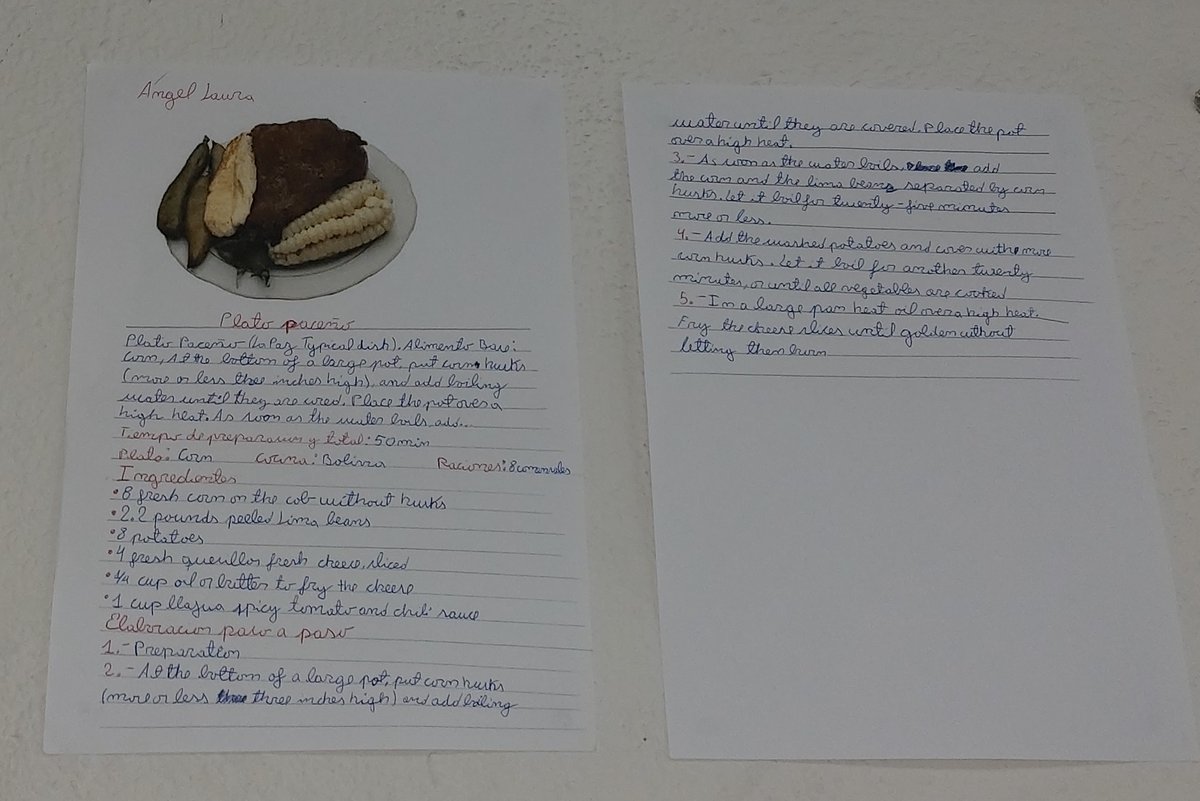 Ángel Laura
Plato paceño
Plato Paceño (La Paz Typical dish). Alimento Base:
Corn, At the bottom of a large pot, put corn husks
(more or less three inches high), and add boiling
water until they are cored. Place the pot over a
high heat. As soon as the water boils, add...
Tiempo de preparacion y total: 50 min
Plato: Corn Cocina: Bolivia Raciones: 8 comensales
Ingredientes
• 8 fresh corn on the cob without husks
• 2.2 pounds peeled Lima beans
• 8 potatoes
• 4 fresh queullos fresh cheece, sliced
• 1/4 cup oil or butter to fry the cheese
• 1 cup llajua spicy tomato and chili sauce
Elaboracion paso a paso
1.- Preparation
2.- At the bottom of a large pot, put corn husks
(more or less three inches high) and add boiling
water until they are covered. Place the pot
over a high heat.
3.- As soon as the water boils, add
the corn and the lima beans separated by corn
husks. Let it boil for twenty-five minutes
more or less.
4.- Add the washed potatoes and cover with more
corn husks. Let it boil for another twenty
minutes, or until all vegetables are cooked
5.- In a large pan heat oil over a high heat.
Fry the cheese slices until golden without
letting them burn